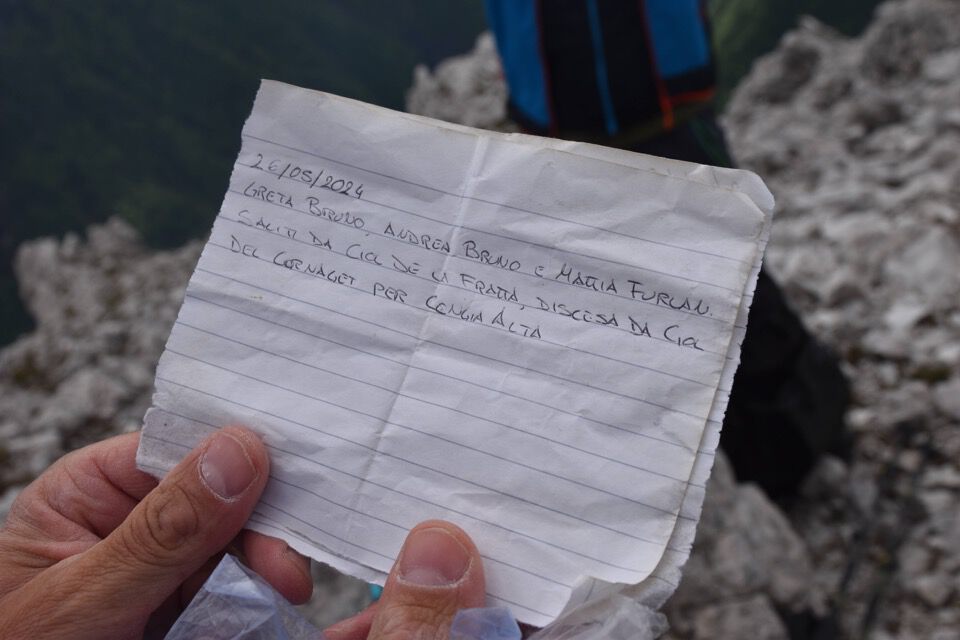 26/05/2024
GRETA BRUNO, ANDREA BRUNO E MATTIA FURLAN.
SALITI DA CIOL DE LA FRATTA, DISCESA DA CIOL
DEL CORNAGET PER CENGIA ALTA